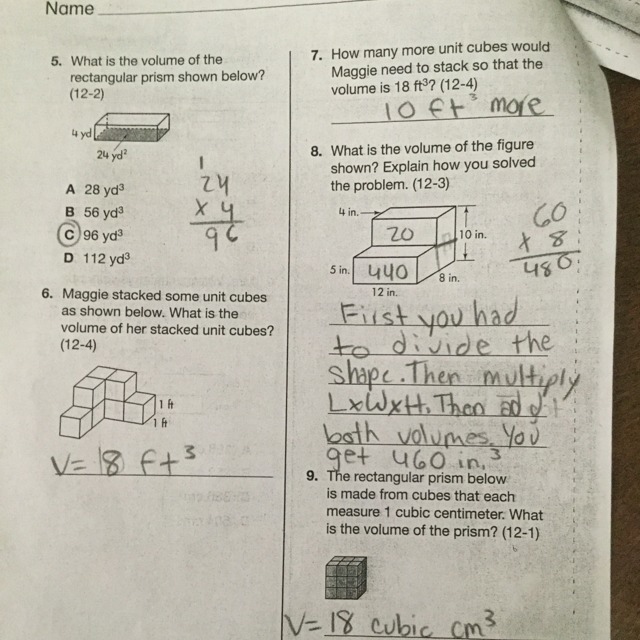 Name
5. What is the volume of the
rectangular prism shown below?
(12-2)
4 yd
24 yd²
A 28 yd³
B 56 yd³
C 96 yd³
D 112 yd³
1
24
x 4
96
6. Maggie stacked some unit cubes
as shown below. What is the
volume of her stacked unit cubes?
(12-4)
1 ft
1 ft
V= 18 ft³
7. How many more unit cubes would
Maggie need to stack so that the
volume is 18 ft³? (12-4)
10 ft³ more
8. What is the volume of the figure
shown? Explain how you solved
the problem. (12-3)
4 in.
20
10 in.
5 in.
440
8 in.
12 in.
60
x 8
480
First you had
to divide the
shape. Then multiply
LxWxH. Then add
both volumes. You
get 460 in.³
9. The rectangular prism below
is made from cubes that each
measure 1 cubic centimeter. What
is the volume of the prism? (12-1)
V= 18 cubic cm³